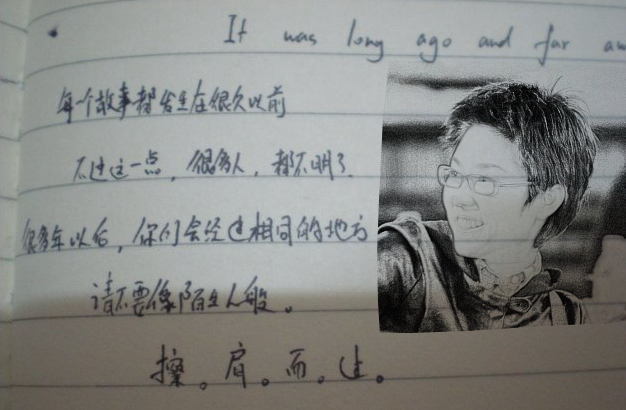 It was long ago and far aw
每一个故事都发生在很久以前
不过这一点，很多人，都不明了
很多年以后，你们会经过相同的地方
请不要像陌生人般。
擦。肩。而。过。